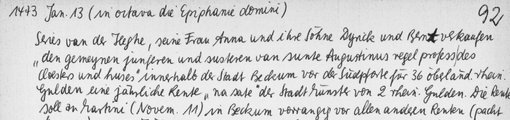 1473 Jan. 13 (in octava die Epiphanie domini) 92
Series van der Heghe, seine Frau Anna und ihre Söhne Dyrick und Bernt verkaufen
„den gemeynen junferen und susteren van sunte Augustinus regel profess des
closters und huses" innerhalb de Stadt Beckum vor der Südpforte für 36 oberländ. rhein.
Gulden eine jährliche Rente „na sate" der Stadt Münster von 2 rhein. Gulden. Die Rente
soll an Martini (Novem. 11) in Beckum vorrangig vor allen anderen Renten (pacht